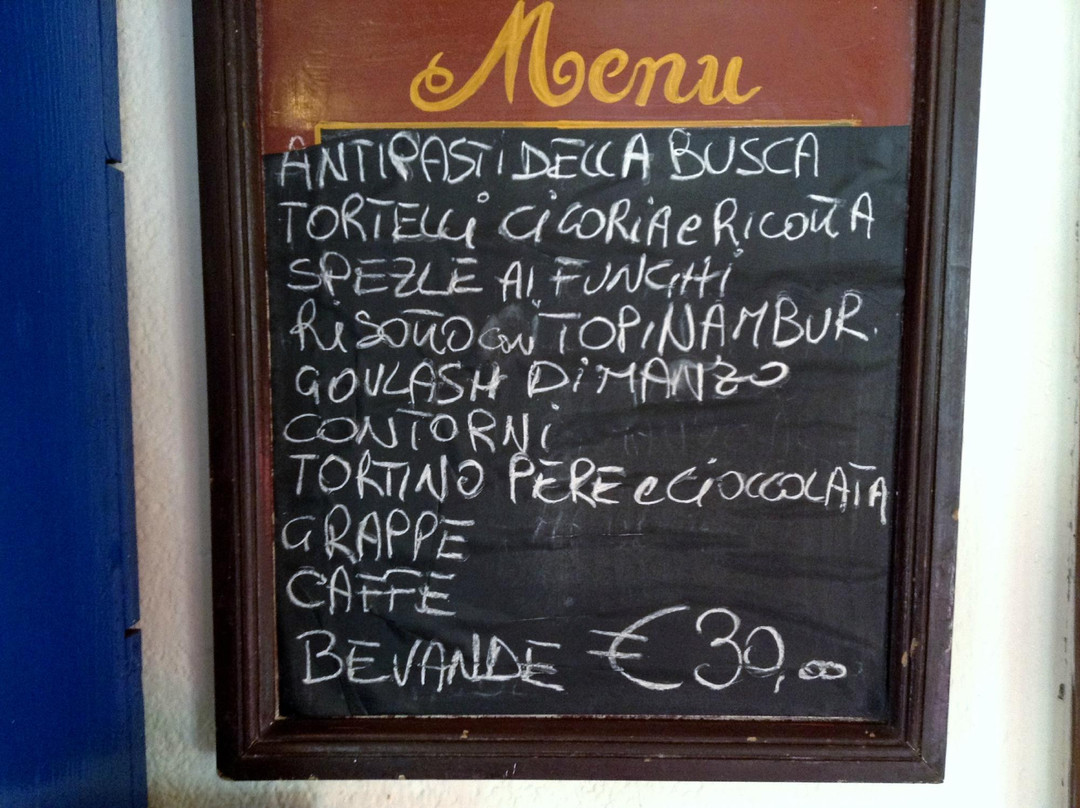 Menu
ANTIPASTI DELLA BUSCA
TORTELLI CICORIA e RICOTTA
SPEZLE AI FUNGHI
RiSOTTO con TOPINAMBUR.
GOULASH Di MANZO
CONTORNi
TORTINO PERE e CiOCCOLATA
GRAPPE
CAFFE
BEVANDE € 30,00